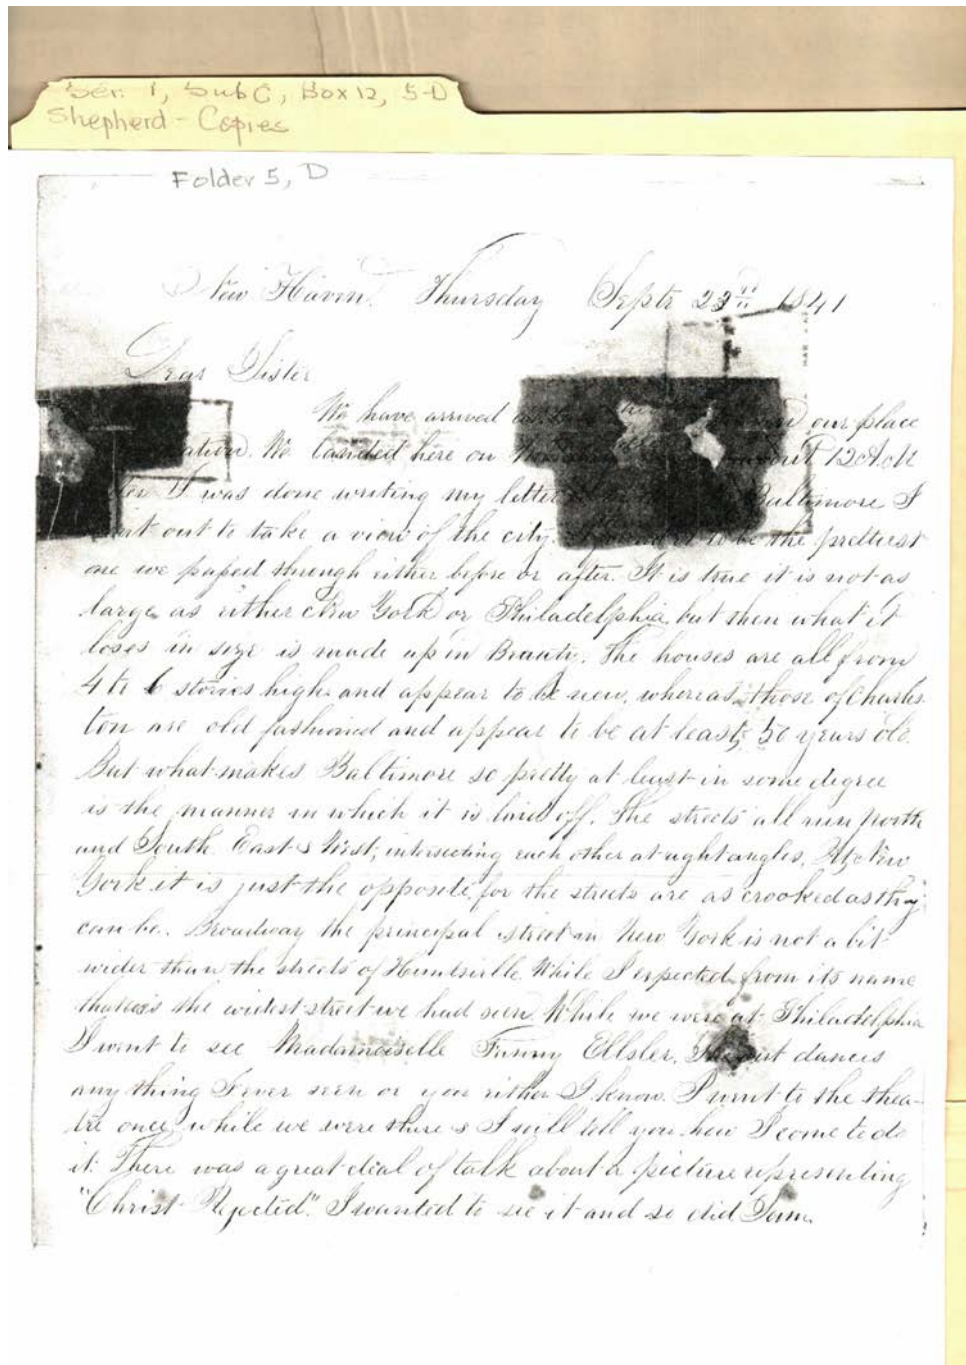 Ser. 1, Sub C, Box 12, 5-D
Shepherd - Copies
Folder 5, D
New Haven. Thursday Septr 23rd 1841
Dear Sister
We have arrived our place
We landed here on about 12 A.M
I was done writing my letter Baltimore I
out to take a view of the city. to be the prettiest
one we passed through either before or after. It is true it is not as
large as either New York or Philadelphia but then what it
loses in size is made up in Beauty. The houses are all from
4 to 6 stories high and appear to be new, whereas those of Charles-
ton are old fashioned and appear to be at least 50 years old.
But what makes Baltimore so pretty at least in some degree
is the manner in which it is laid off. The streets all run North
and South East & West, intersecting each other at right angles. New
York it is just the opposite, for the streets are as crooked as they
can be. Broadway the principal street in New York is not a bit
wider than the streets of Huntsville. While I expected from its name
the widest street we had seen. While we were at Philadelphia
I went to see Madamoiselle Fanny Ellsler. She out dances
any thing I ever seen or you either I know. I went to the thea-
tre once while we were there & I will tell you how I come to do
it. There was a great deal of talk about a picture representing
"Christ Rejected". I wanted to see it and so did Sam.